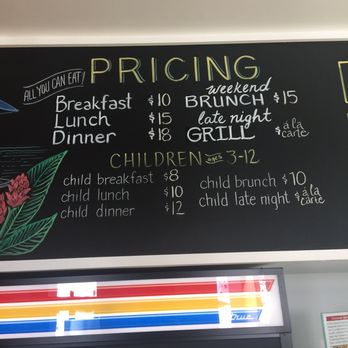 ALL YOU CAN EAT!
PRICING
Breakfast $10
Lunch $15
Dinner $18
weekend
BRUNCH $15
late night
GRILL $ á la carte
CHILDREN ages 3-12
child breakfast $8
child lunch $10
child dinner $12
child brunch $10
child late night $ á la carte
True